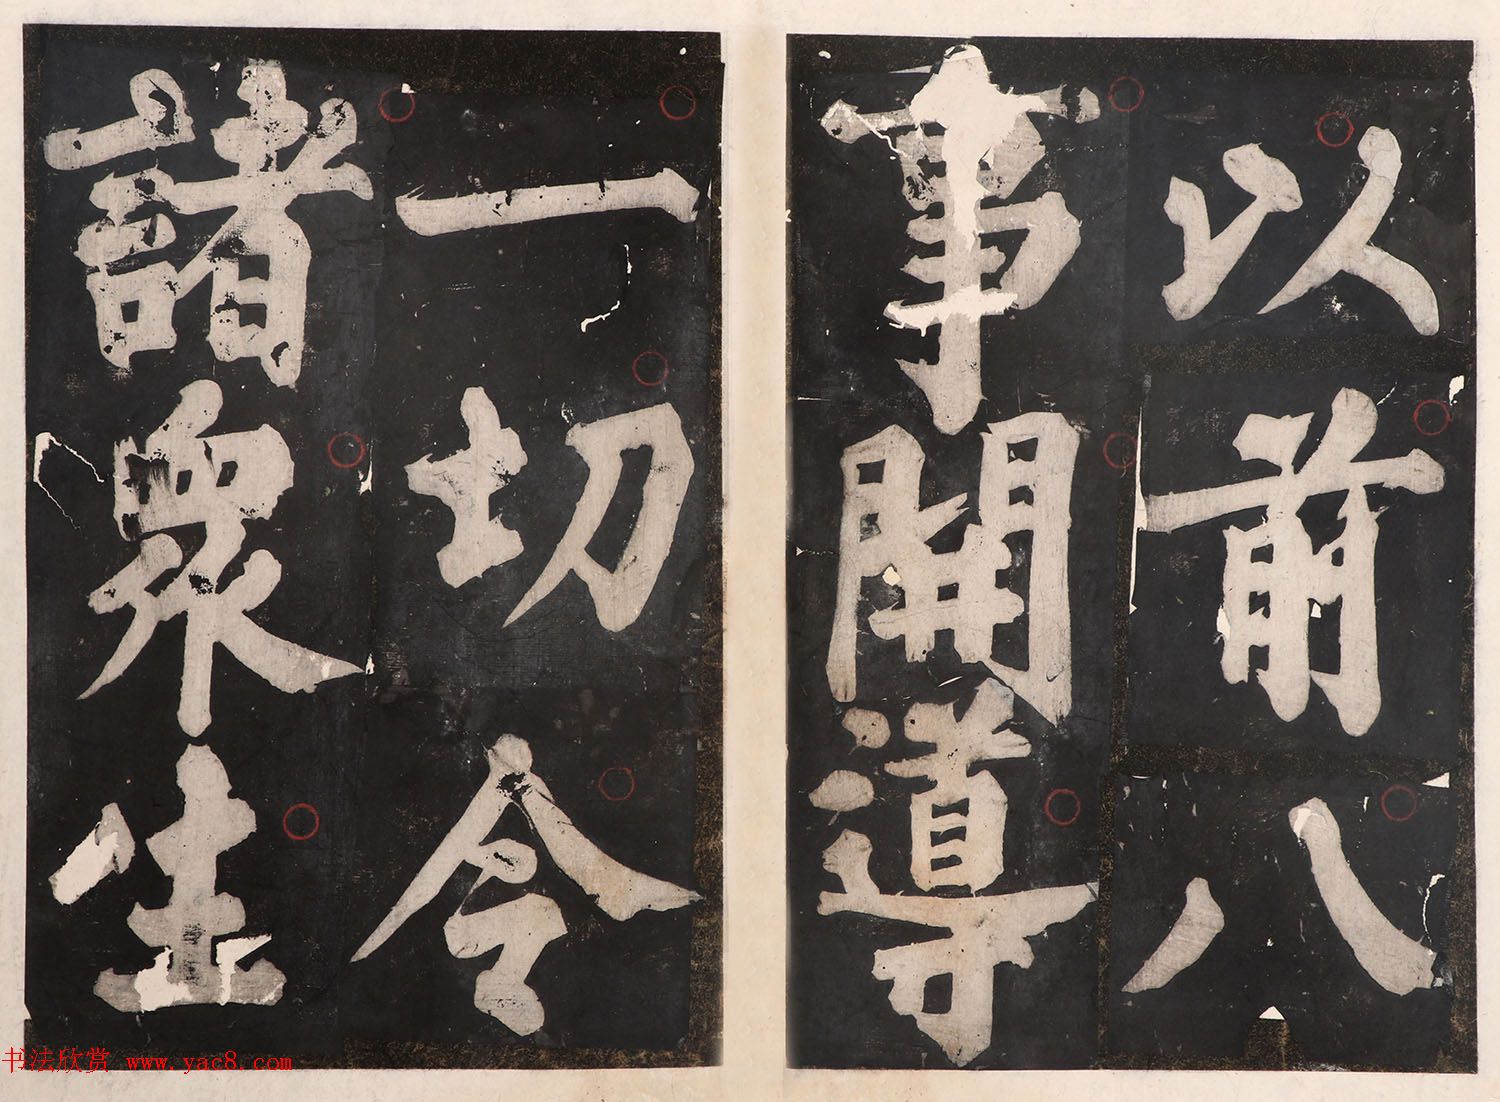 以前八
事開導
一切令
諸衆生
书法欣赏 www.yac8.com